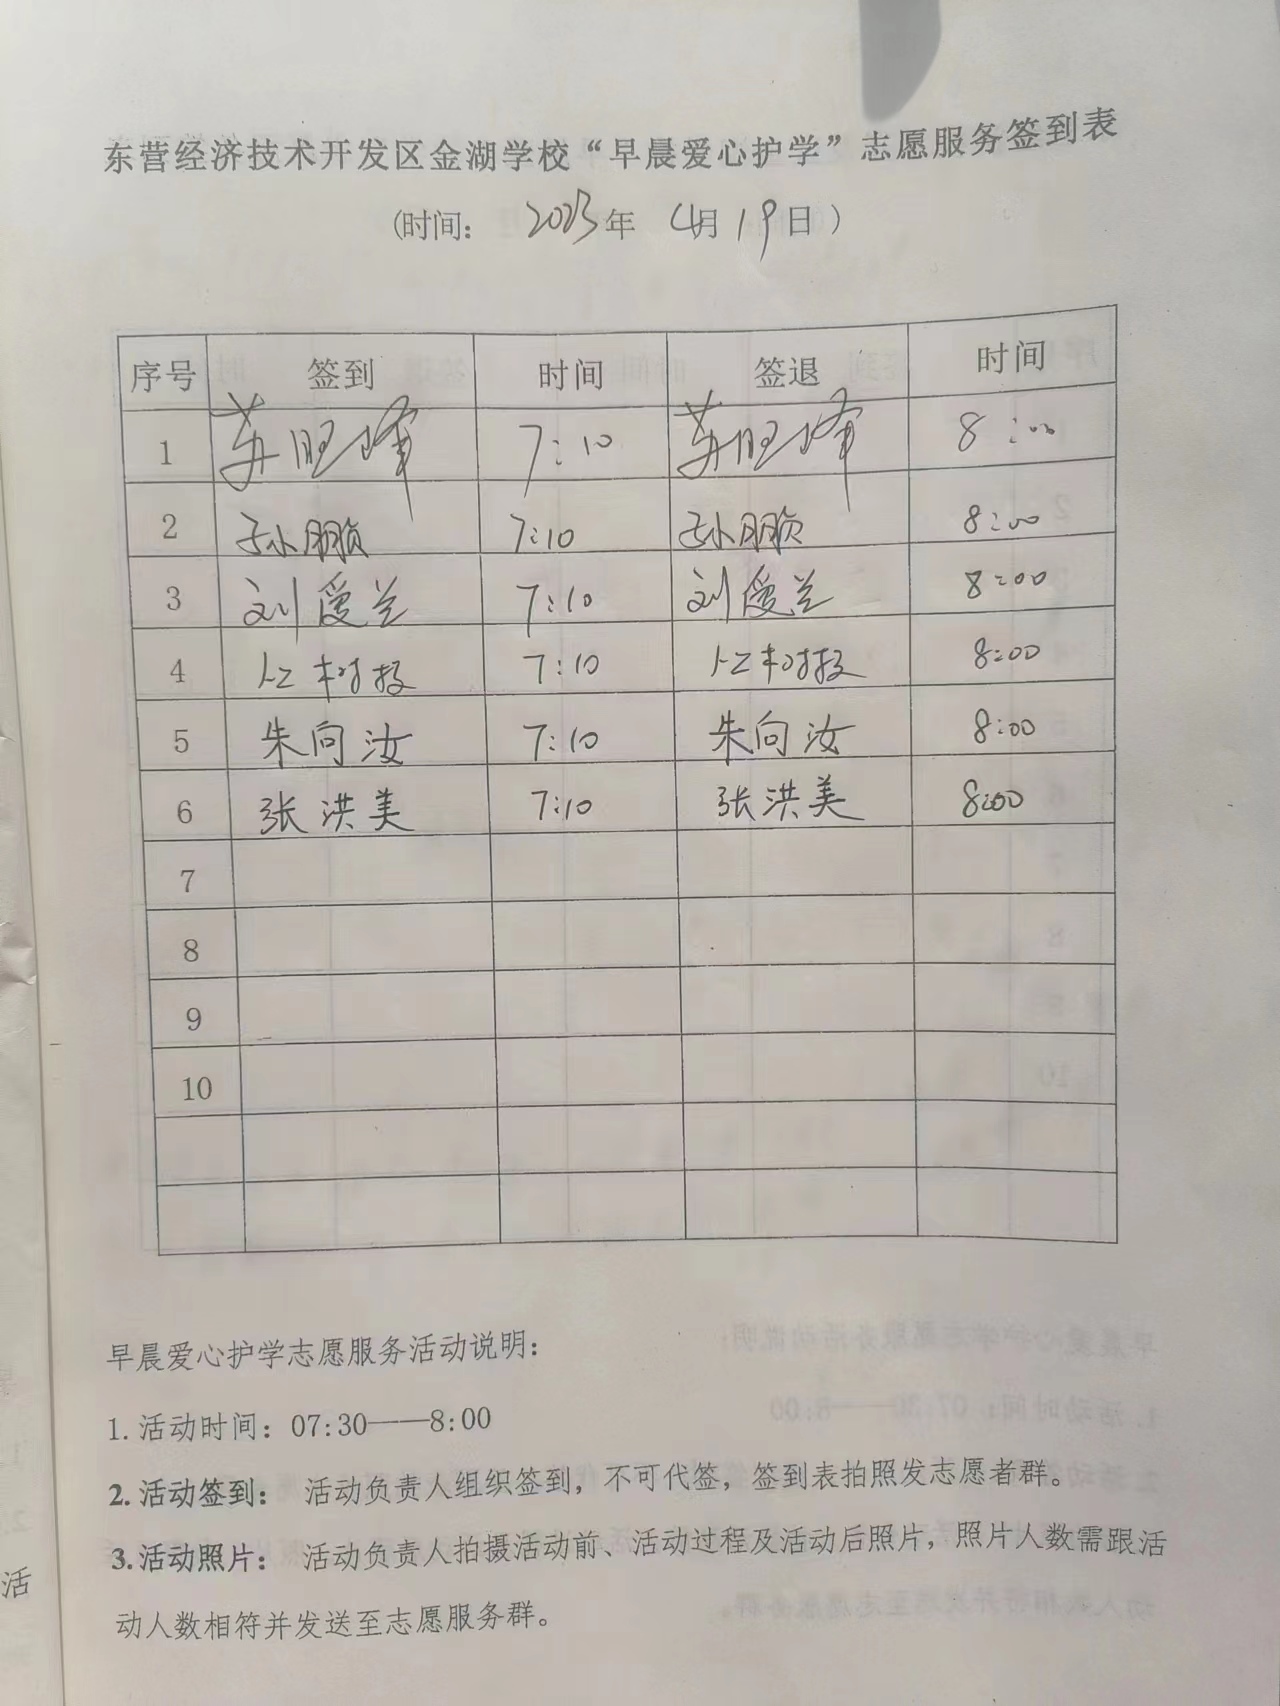 东营经济技术开发区金湖学校“早晨爱心护学”志愿服务签到表
(时间： 2023年 4月19日）
序号 签到 时间 签退 时间
1 苏旺峰 7:10 苏旺峰 8:00
2 孙鹏 7:10 孙鹏 8:00
3 刘爱兰 7:10 刘爱兰 8:00
4 7:10 8:00
5 朱向汝 7:10 朱向汝 8:00
6 张洪美 7:10 张洪美 8:00
7
8
9
10
早晨爱心护学志愿服务活动说明：
1. 活动时间：07:30——8:00
2. 活动签到： 活动负责人组织签到，不可代签，签到表拍照发志愿者群。
3. 活动照片： 活动负责人拍摄活动前、活动过程及活动后照片，照片人数需跟活
动人数相符并发送至志愿服务群。
活